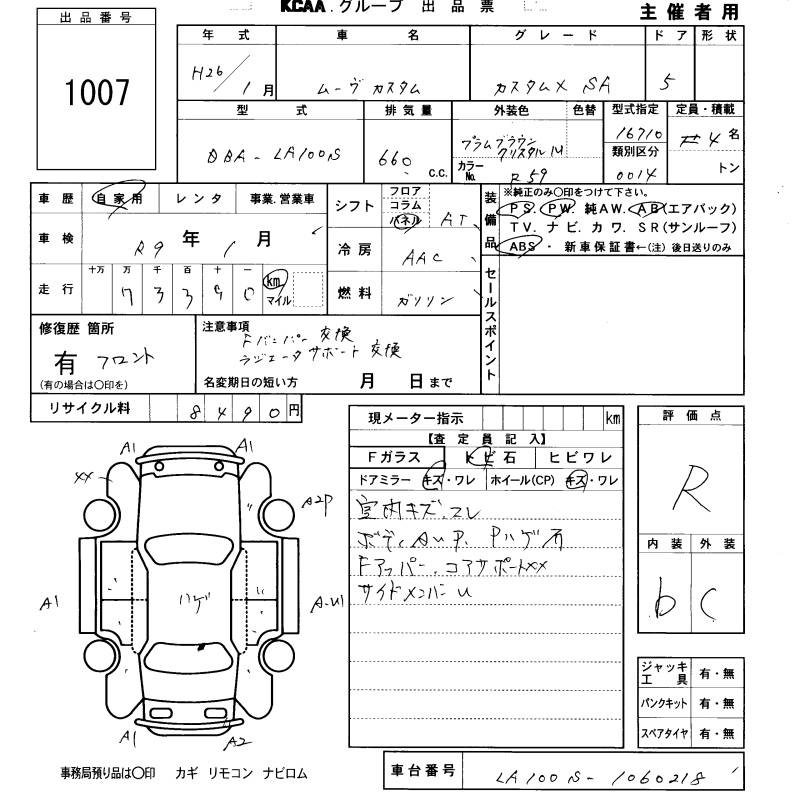 KCAA.グループ 出品票
主催者用
出品番号
1007
年式 車名 グレード ドア 形状
H26/1月 ムーヴ カスタム カスタムX SA 5
型式 排気量 外装色 色替 型式指定 定員・積載
DBA-LA100S 660 c.c. プラムブラウンクリスタルM 16710 4名
カラーNo. R59 類別区分 0014 トン
車歴 自家用 レンタ 事業.営業車
シフト フロア コラム パネル AT
装備品 ※純正のみ〇印をつけて下さい。
PS. PW. 純AW. AB(エアバック)
TV. ナビ. カワ. SR(サンルーフ)
ABS ・ 新車保証書←(注) 後日送りのみ
車検 R9年1月
冷房 AAC
走行 十万 万 千 百 十 一
73390 km マイル
燃料 ガソリン
セールスポイント
修復歴 箇所
有 フロント
(有の場合は〇印を)
注意事項
Fバンパー 交換
ラジエータサポート 交換
名変期日の短い方 月 日まで
リサイクル料 8490円
現メーター指示 km
【査定員記入】
Fガラス トビ石 ヒビワレ
ドアミラー キズ・ワレ ホイール(CP) キズ・ワレ
室内キズ.スレ
ボディAUP. Pハゲ有
Fアッパー.コアサポートXX
サイドメンバーU
評価点
R
内装 外装
b C
ジャッキ工具 有・無
パンクキット 有・無
スペアタイヤ 有・無
A1 A1
XX
A2P
A1
ハゲ
A-U1
A1 A2
事務局預り品は〇印 カギ リモコン ナビロム
車台番号 LA100S-1060218